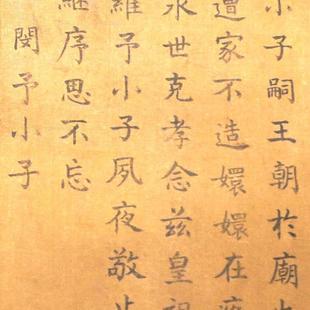 小子嗣王朝於廟也
遭家不造嬛嬛在疚
永世克孝念兹皇祖
維予小子夙夜敬止
繼序思不忘
閔予小子